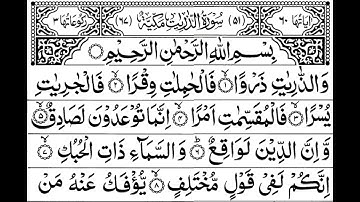 اٰیاتها ٦٠ (٥١) سُوْرَةُ الذّٰرِیٰتِ مَكِّیَّةٌ (٦٧) ركوعاتها ٣
بِسْمِ اللّٰهِ الرَّحْمٰنِ الرَّحِیْمِ
وَالذّٰرِیٰتِ ذَرْوًا ۙ۝١ فَالْحٰمِلٰتِ وِقْرًا ۙ۝٢ فَالْجٰرِیٰتِ
یُسْرًا ۙ۝٣ فَالْمُقَسِّمٰتِ اَمْرًا ۙ۝٤ اِنَّمَا تُوْعَدُوْنَ لَصَادِقٌ ۙ۝٥
وَّاِنَّ الدِّیْنَ لَوَاقِعٌ ؕ۝٦ وَالسَّمَآءِ ذَاتِ الْحُبُكِ ۙ۝٧
اِنَّكُمْ لَفِیْ قَوْلٍ مُّخْتَلِفٍ ۙ۝٨ یُّؤْفَكُ عَنْهُ مَنْ